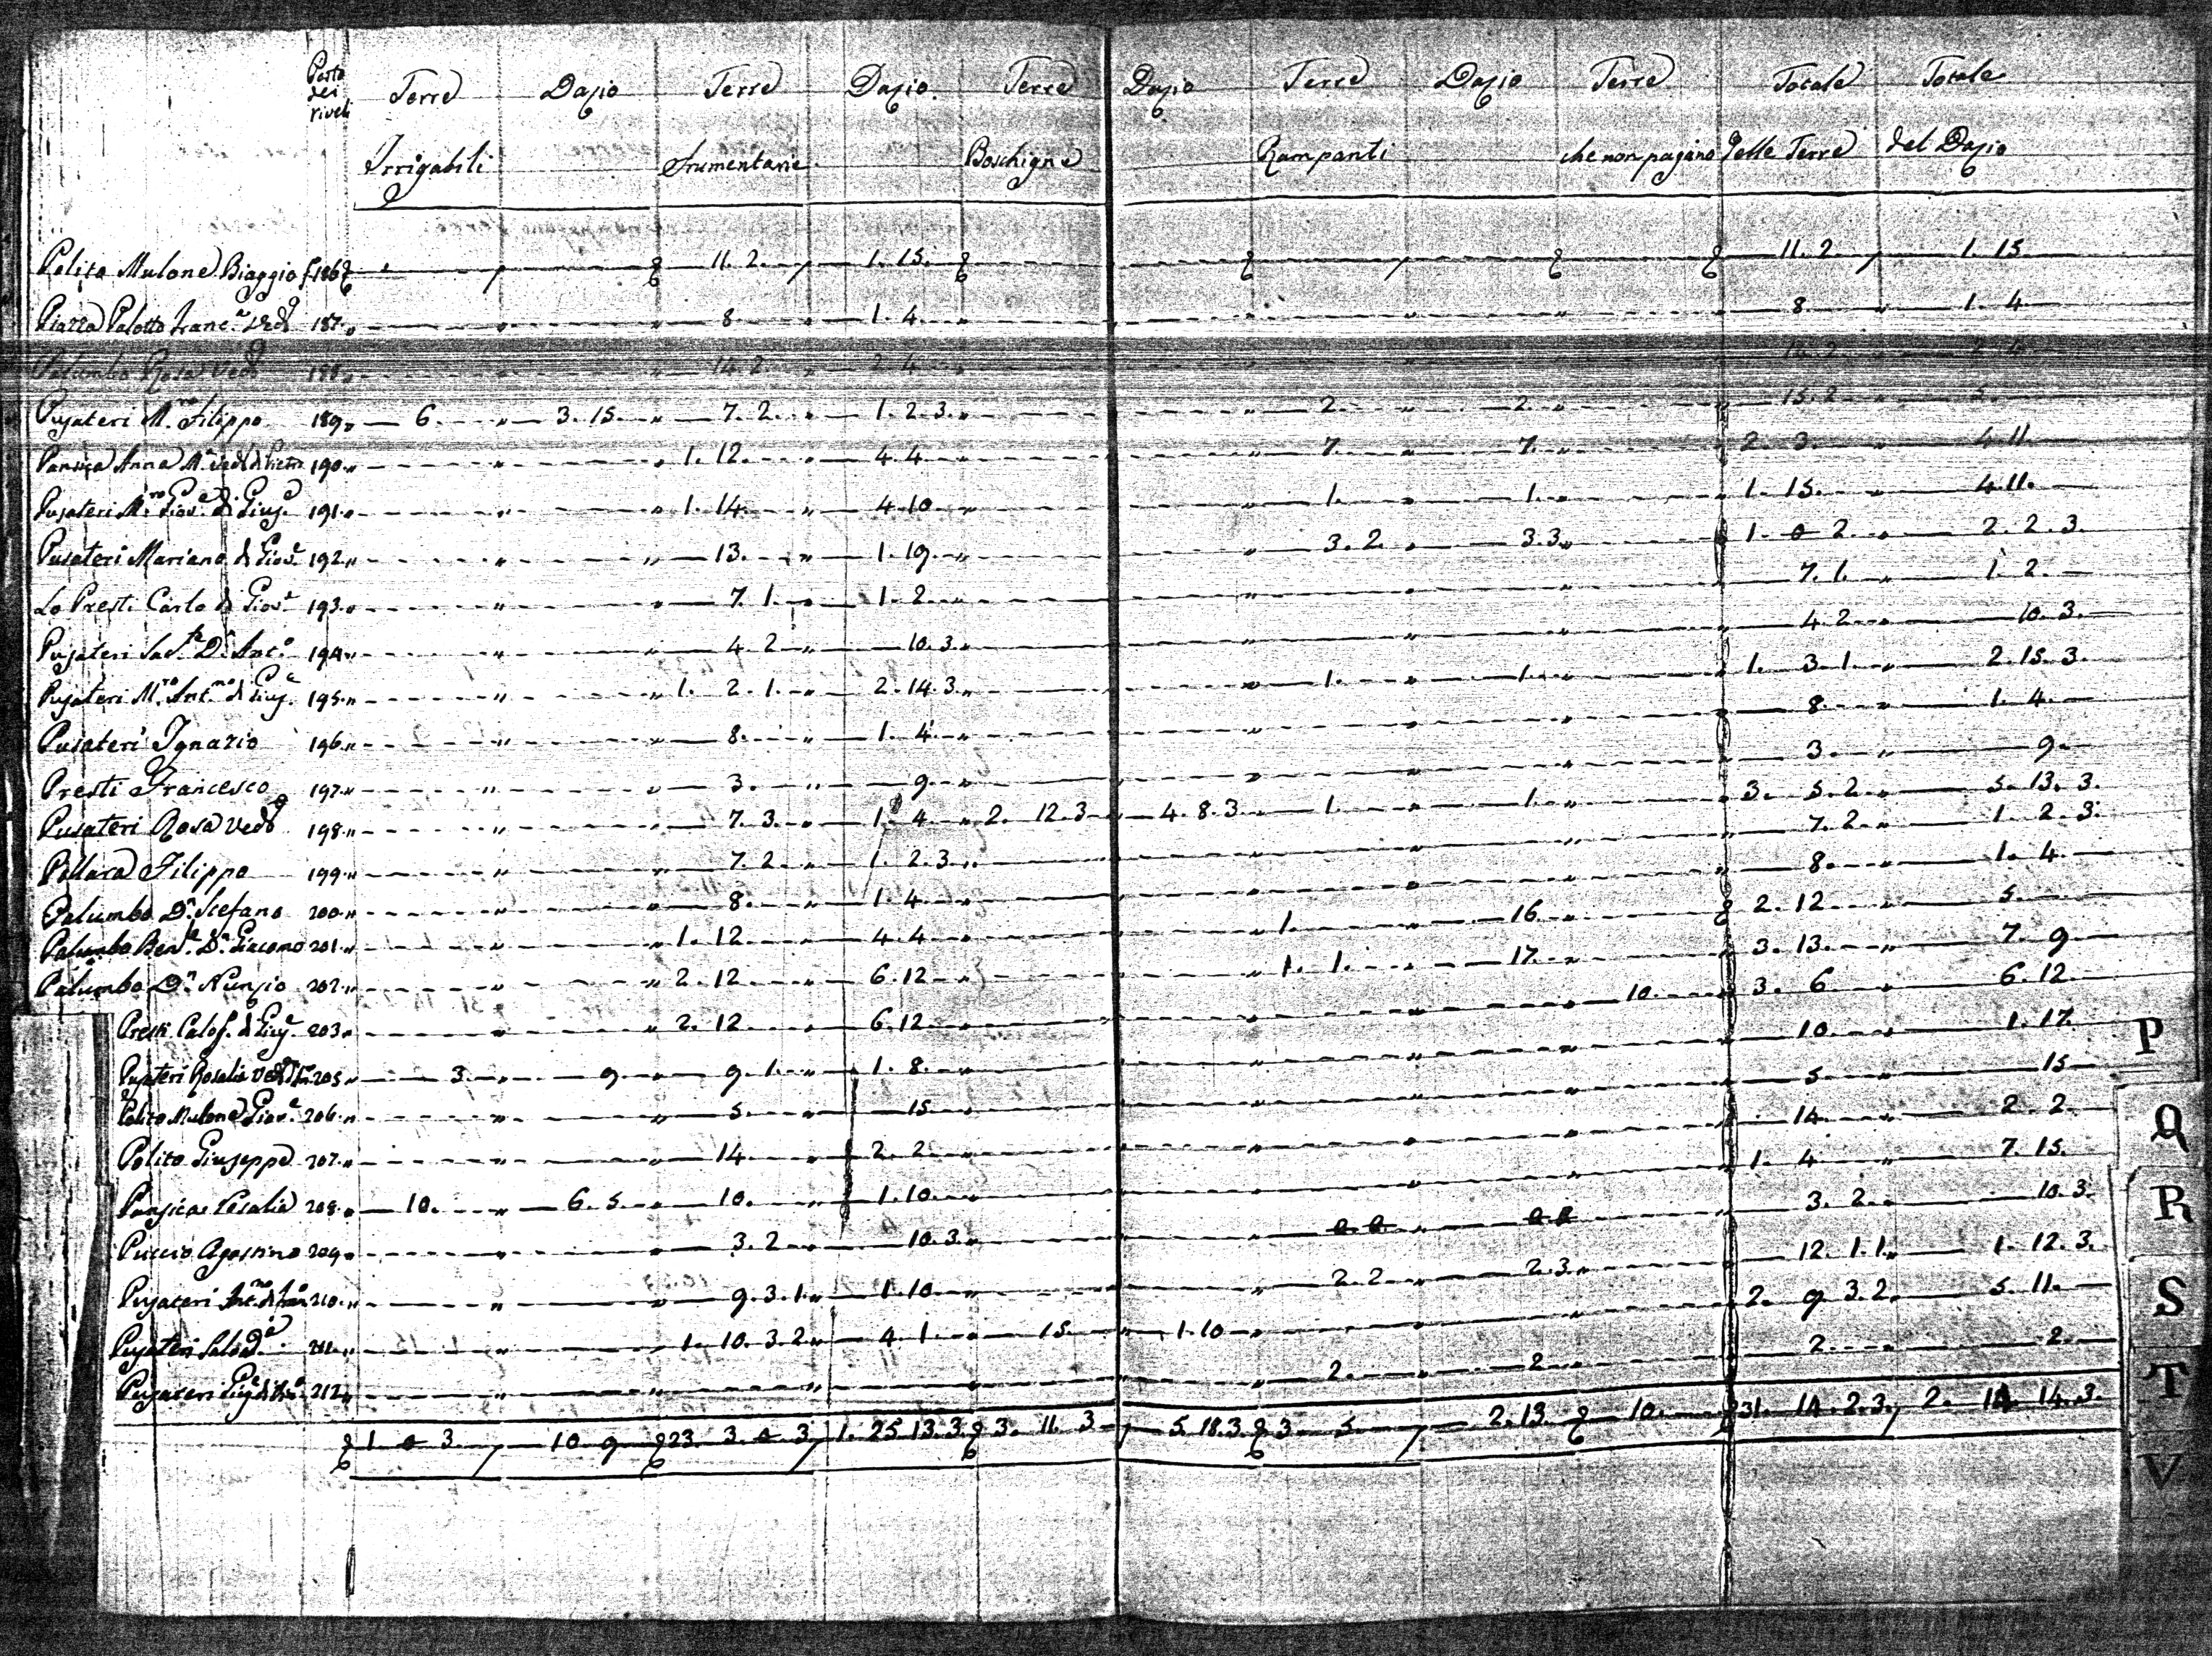 Parto dei riveli Terre Dazio Terre Dazio Terre Dazio Terre Dazio Terre Totale Totale
Irrigabili frumentarie Boschigne Rampanti che non pagano delle Terre del Dazio
Polito Mulone Biaggio f. 186 11. 2. 1. 15. 11. 2 1. 15
Piazza Palotto Franc.a Ved.a 187 8 1. 4. 8 1. 4
Palumbo Rosa Ved.a 188 14. 2 2. 4 14. 2 2. 4
Pusateri M.ro Filippo 189 6 3. 15. 7. 2. 1. 2. 3. 2. 2. 15. 2 5
Pansica Anna M.a Ved.a di 190 1. 12. 4. 4 7. 7. 2. 3. 4. 11.
Pusateri M.ro Giov.e di Gius.e 191 1. 14. 4. 10 1. 1. 1. 15. 4. 11.
Pusateri Mariano di Giov.e 192 13. 1. 19. 3. 2. 3. 3. 1. 0 2. 2. 2. 3
Lo Presti Carlo di Giov.e 193 7. 1. 1. 2. 7. 1. 1. 2.
Pusateri Sac.te D.n Ant.o 194 4. 2 10. 3. 4. 2. 10. 3.
Pusateri M.ro Ant.no di Gius.e 195 1. 2. 1. 2. 14. 3. 1. 1. 1. 3. 1. 2. 15. 3.
Pusateri Ignazio 196 8. 1. 4. 8. 1. 4.
Presti Francesco 197 3. 9. 3. 9.
Pusateri Rosa Ved.a 198 7. 3. 1. 4 2. 12. 3 4. 8. 3 1. 1. 3. 5. 2. 5. 13. 3.
Pollara Filippo 199 7. 2. 1. 2. 3. 7. 2. 1. 2. 3.
Palumbo D.n Stefano 200 8. 1. 4. 8. 1. 4.
Palumbo Ben.le D.n Giacomo 201 1. 12 4. 4 1. 16. 2. 12 5.
Palumbo D.n Nunzio 202 2. 12 6. 12 1. 1. 17. 3. 13. 7. 9
Presti Calog. di Gius.e 203 2. 12 6. 12 10. 3. 6 6. 12
Pusateri Rosalia Ved.a 205 3. 9. 9. 1. 1. 8. 10. 1. 17.
Polito Mulone Giov.e 206 5. 15 5. 15
Polito Giuseppe 207 14 2. 2 14. 2. 2
Pansica Rosalia 208 10. 6. 5. 10. 1. 10. 1. 4 7. 15.
Puccio Agostino 209 3. 2 10. 3. 0. 0. 0. 0 3. 2. 10. 3.
Pusateri Ant.no di 210 9. 3. 1. 1. 10 2. 2. 2. 3. 12. 1. 1. 1. 12. 3.
Pusateri Salvad.e 211 1. 10. 3. 2 4. 1. 15. 1. 10 2. 9 3. 2. 5. 11.
Pusateri Gius.e di 212 2. 2 2. 2.
1. 0 3. 10. 9 23. 3. 0. 3. 1. 25. 13. 3. 3. 11. 3 5. 18. 3. 3. 5. 2. 13. 10. 31. 14. 2. 3. 2. 14. 14. 3.
P
Q
R
S
T
V